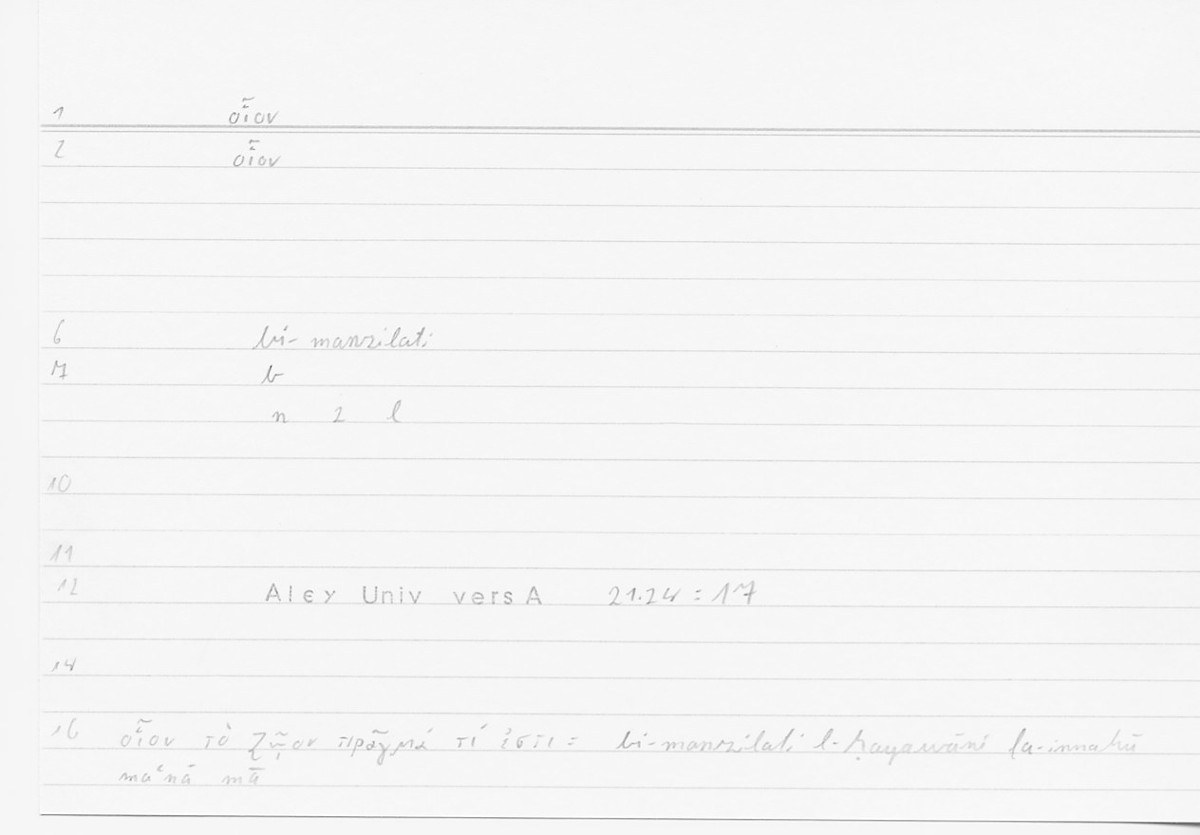 1 οἷον
2 οἷον
6 bi-manzilati
7 b
n z l
10
11
12 Alex Univ vers A 21.24 = 17
14
16 οἷον τὸ ζῷον πρᾶγμά τί ἐστι = bi-manzilati l-ḥayawāni fa-innahū
maʿnā mā